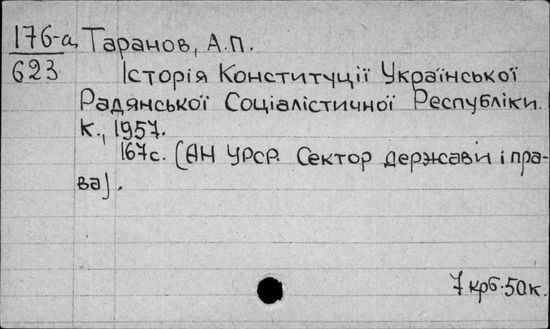 176-а Таранов, А.П.
623 Історія Конституції Української
Радянської Соціалістичної Республіки.
К., 1957.
167с. (АН УРСР. Сектор держави і пра-
ва).
7 крб. 50к.